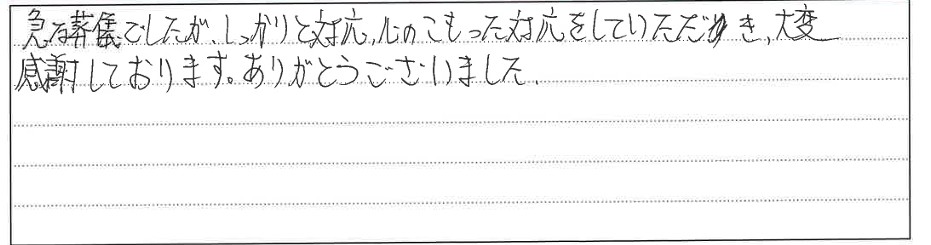 急な葬儀でしたが、しっかりと対応、心のこもった対応をしていただき、大変
感謝しております。ありがとうございました。